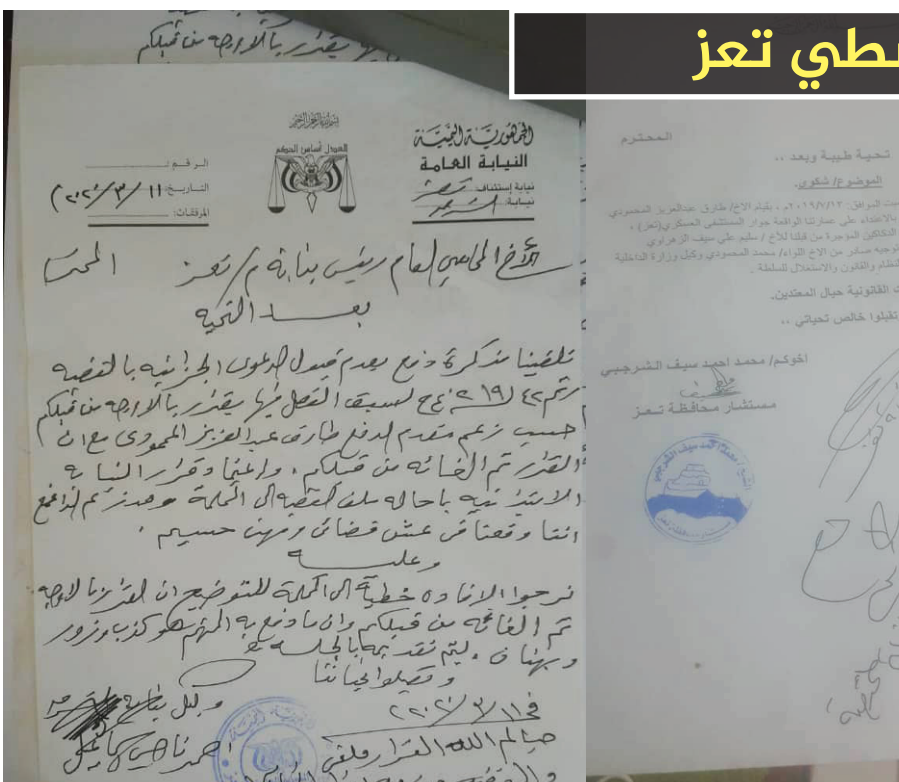 سطي تعز
يقرر بالاوجه من قبلكم
بسم الله الرحمن الرحيم
الجمهورية اليمنية
النيابة العامة
نيابة إستئناف: تعز
نيابة:
العدل أساس الحكم
الرقم:
التاريخ: ١١ / ٣ / ٢٠٢٠
المرفقات:
الأخ المحامي العام رئيس نيابة م/ تعز المحترم
بعد التحية
تلقينا مذكرة دفع بعدم قبول الدعوى الجزائية بالقضية
رقم ٤٢ لسبق الفصل فيها بقرار بالاوجه من قبلكم
حسب زعم متقدم الدفع طارق عبدالعزيز المحمودي مع ان
القرار تم الغائه من قبلكم، واغتما وقرار النيابة
الابتدائيه باحالة ملف القضيه الى المحكمة
اننا وقعنا في غش قضائي ومهني جسيم.
وعليه
نرجوا الافاده خطياً الى المحكمة للتوضيح ان القرار بالاوجه
تم الغائه من قبلكم وان ما دفع به المتهم هو كذب وزور
وبهتان، ليتم تقديمه بالجلسة
وتقبلوا تحياتنا
وكيل نيابة
في ١١/٣/٢٠٢٠
المحترم
تحية طيبة وبعد ،،
الموضوع/ شكوى.
الموافق: ٢٠١٩/٧/١٣م ، بقيام الاخ/ طارق عبدالعزيز المحمودي
بالاعتداء على عمارتنا الواقعة جوار المستشفى العسكري(تعز) ،
الدكاكين المؤجرة من قبلنا للأخ / سليم علي سيف الزهراوي
توجيه صادر من الاخ اللواء/ محمد المحمودي وكيل وزارة الداخلية
النظام والقانون والاستغلال للسلطة .
القانونية حيال المعتدين.
تقبلوا خالص تحياتي ،،
اخوكم/ محمد احمد سيف الشرجبي
مستشار محافظة تعز